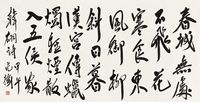 春城無處
不飛花
寒食東
風御柳
斜日暮
漢宮傳蠟
燭輕煙散
入五侯家
韓翃詩 甲午